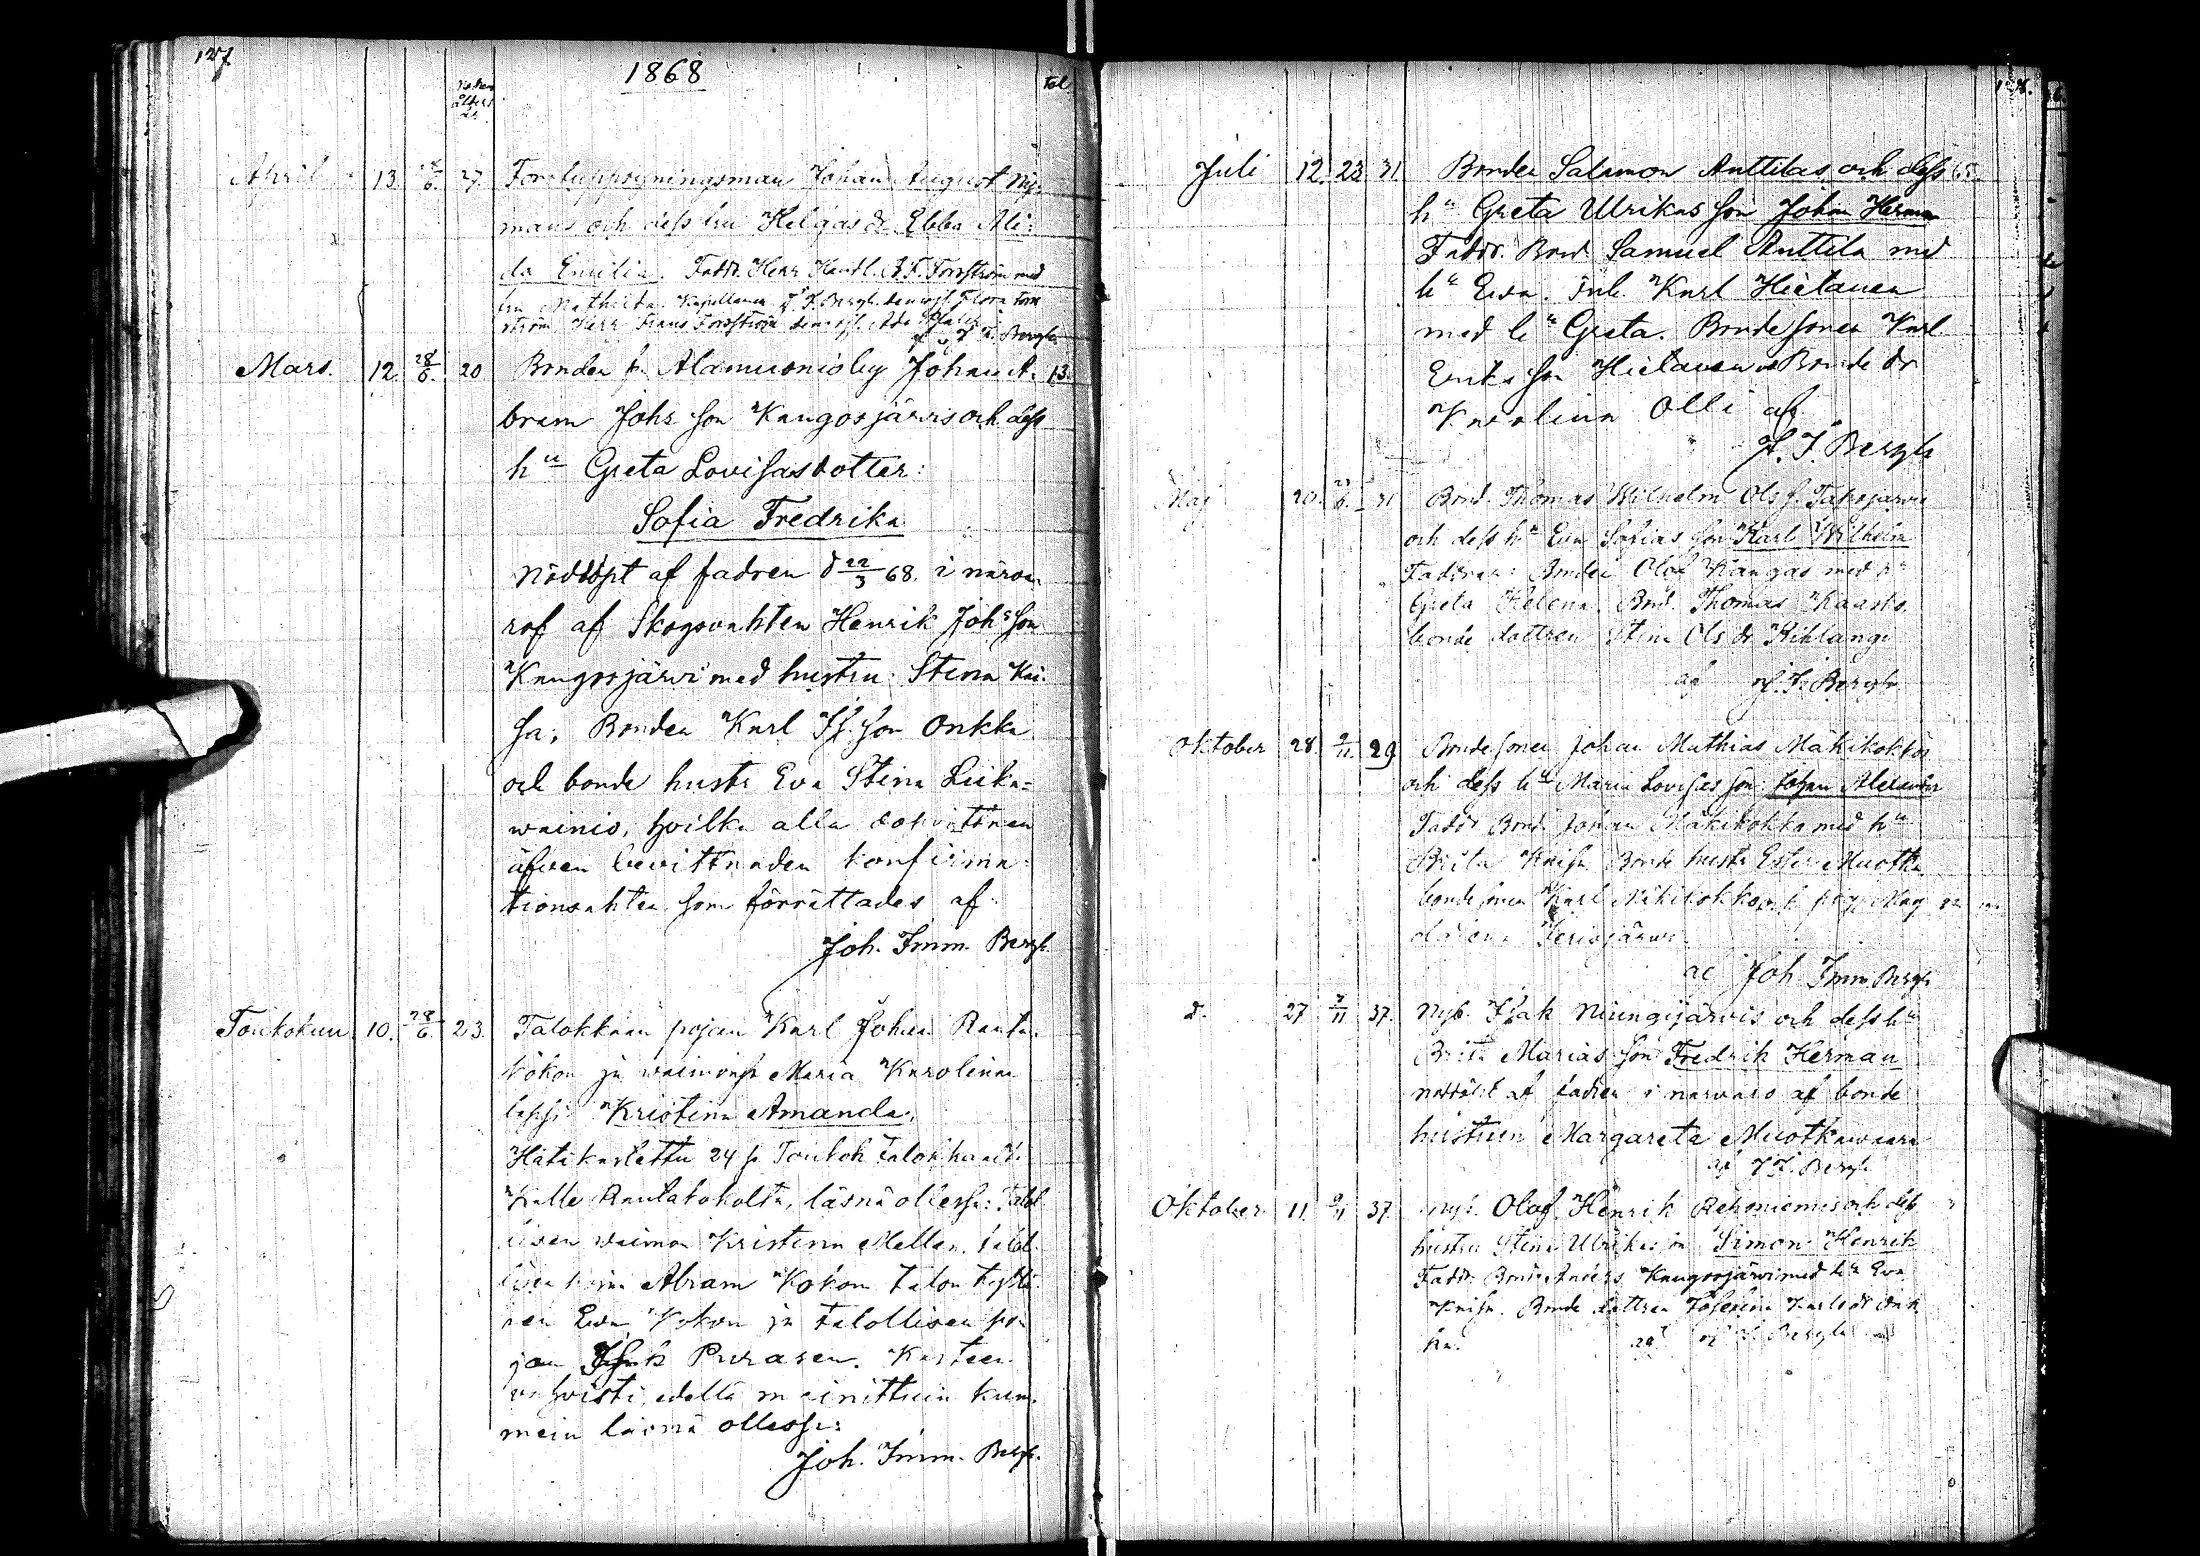 127.
1868
tal
April 13. 28/6. 27. Forstuppsyningsman Johan August Ny-
mans och dess fru Helgas dr Ebba Ali-
da Emilia. Faddr. Herr Handl. Forsström med
fru Mathilda. Kapellanen J. I. Bergh. Flora Fors
ström Herr Frans Forsström Ada
J. I. Bergh
Mars. 12. 28/6. 20. Bonden fr. Alamuonioby Johan A- 13.
bram Johs son Kangosjärvis och dess
hu Greta Lovisas dotter:
Sofia Fredrika
Nöddöpt af fadren d 22/3 68. i närva-
raf af Skogsvahten Henrik Johs son
Kangosjärvi med hustru Stina Kai-
sa; Bonden Karl Is. son Onkka
och bonde hustr Eva Stina Liika-
wainio, hvilka alla dopvittnen
äfven bevittnaden konfirma-
tionsahten som förrättades af
Joh. Imm. Bergh
Toukokuu 10. 28/6. 23. Talokkaan pojan Karl Johan Rauta-
kokon ja waimonsa Maria Karolinan
lapsi Kristina Amanda.
Hätäkastettu 24 p Toukok
Kalle Rautakokolta, läsnä ollessa: Talol
lisen waimon Kristina Mellan. talol
lisen Abram Kokon talon
ren Ewa Kokon ja talollisen po-
jan Isak Purasen. Kasteen
vahvisti edellä mainittuin kum-
mein läsnä ollessa:
Joh. Imm. Bergh.
Juli 12. 23 31. Bonden Salamon Anttilas och dess 65.
hu Greta Ulrikas son Johan Herman
Faddr. Bond. Samuel Anttila med
hu Eva. Inh. Karl Hietanen
med hu Greta. Bondesonen Karl
Eriks son Hietanen o Bonde dr
Karolina Olli af
J. I. Bergh
Maj 20. 31 Bond. Thomas Wilhelm Ols s. Tapojärvis
och dess hu Eva Sofias son Karl Wilhelm
Faddrar: Bonden Olof Kangas med hu
Greta Helena. Bond. Thomas
bonde dottren Stina Ols dr Kihlangi
af J. I. Bergh
Oktober 28. 9/11. 29. Bondesonen Johan Mathias Mäkikokkos
och dess hu Maria Lovisas son: Johan Alexander
Faddr Bond. Johan Mäkikokko med hu
Brita Kaisa Bonde hustr Ester Muotka
bonde sonen Karl Mäkikokko
Jerisjärvi
af Joh Imm Bergh
d. 27 37. Nyb. Isak Niringijärvis och dess hu
Brita Marias son Fredrik Herman
nöddöpt af fadren i närvaro af bonde
hustrun Margareta Muotkavaara
af J I. Bergh
Oktober. 11. 9/11 37. Nyb. Olof Henrik Rehoniemis och dess
hustru Stina Ulrikas son Simon Henrik
Faddr. Bond Anders Kangosjärvi med hu Eva
Kaisa. Bonde dottren Josefina Karls dr Onk
ka. af J. I. Bergh